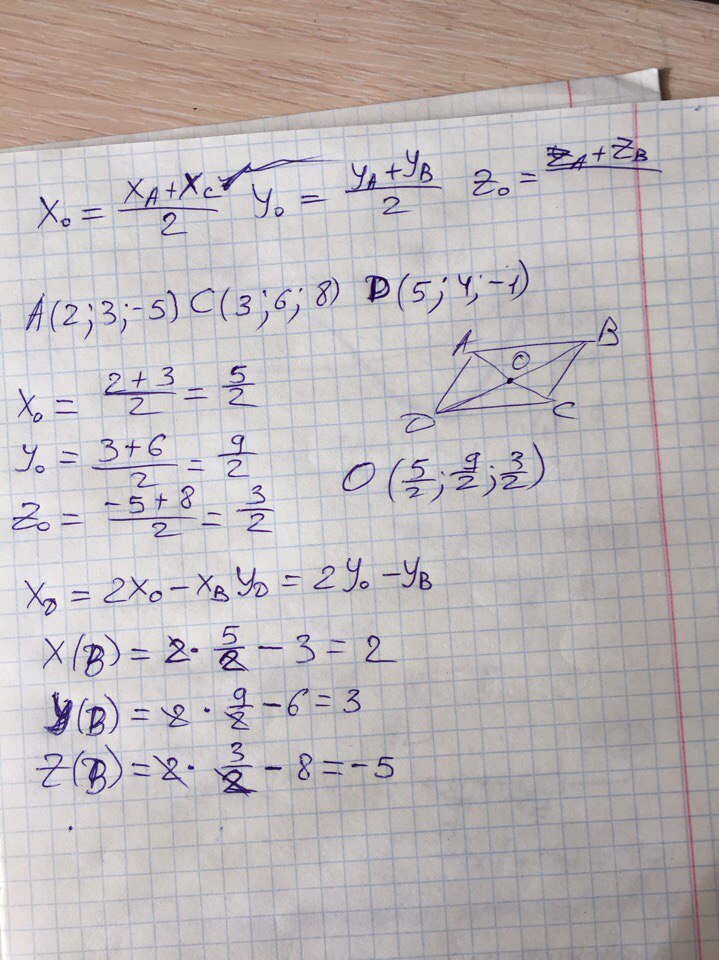 X₀ = (X_A + X_C)/2 y₀ = (y_A + y_B)/2 Z₀ = Z_A + Z_B
A(2;3;-5) C(3;6;8) D(5;4;-1)
A B
O
D C
X₀ = (2+3)/2 = 5/2
y₀ = (3+6)/2 = 9/2
O(5/2; 9/2; 3/2)
Z₀ = (-5+8)/2 = 3/2
X_D = 2X₀ - X_B y_D = 2y₀ - y_B
X(B) = 2 · 5/2 - 3 = 2
y(B) = 2 · 9/2 - 6 = 3
Z(B) = 2 · 3/2 - 8 = -5